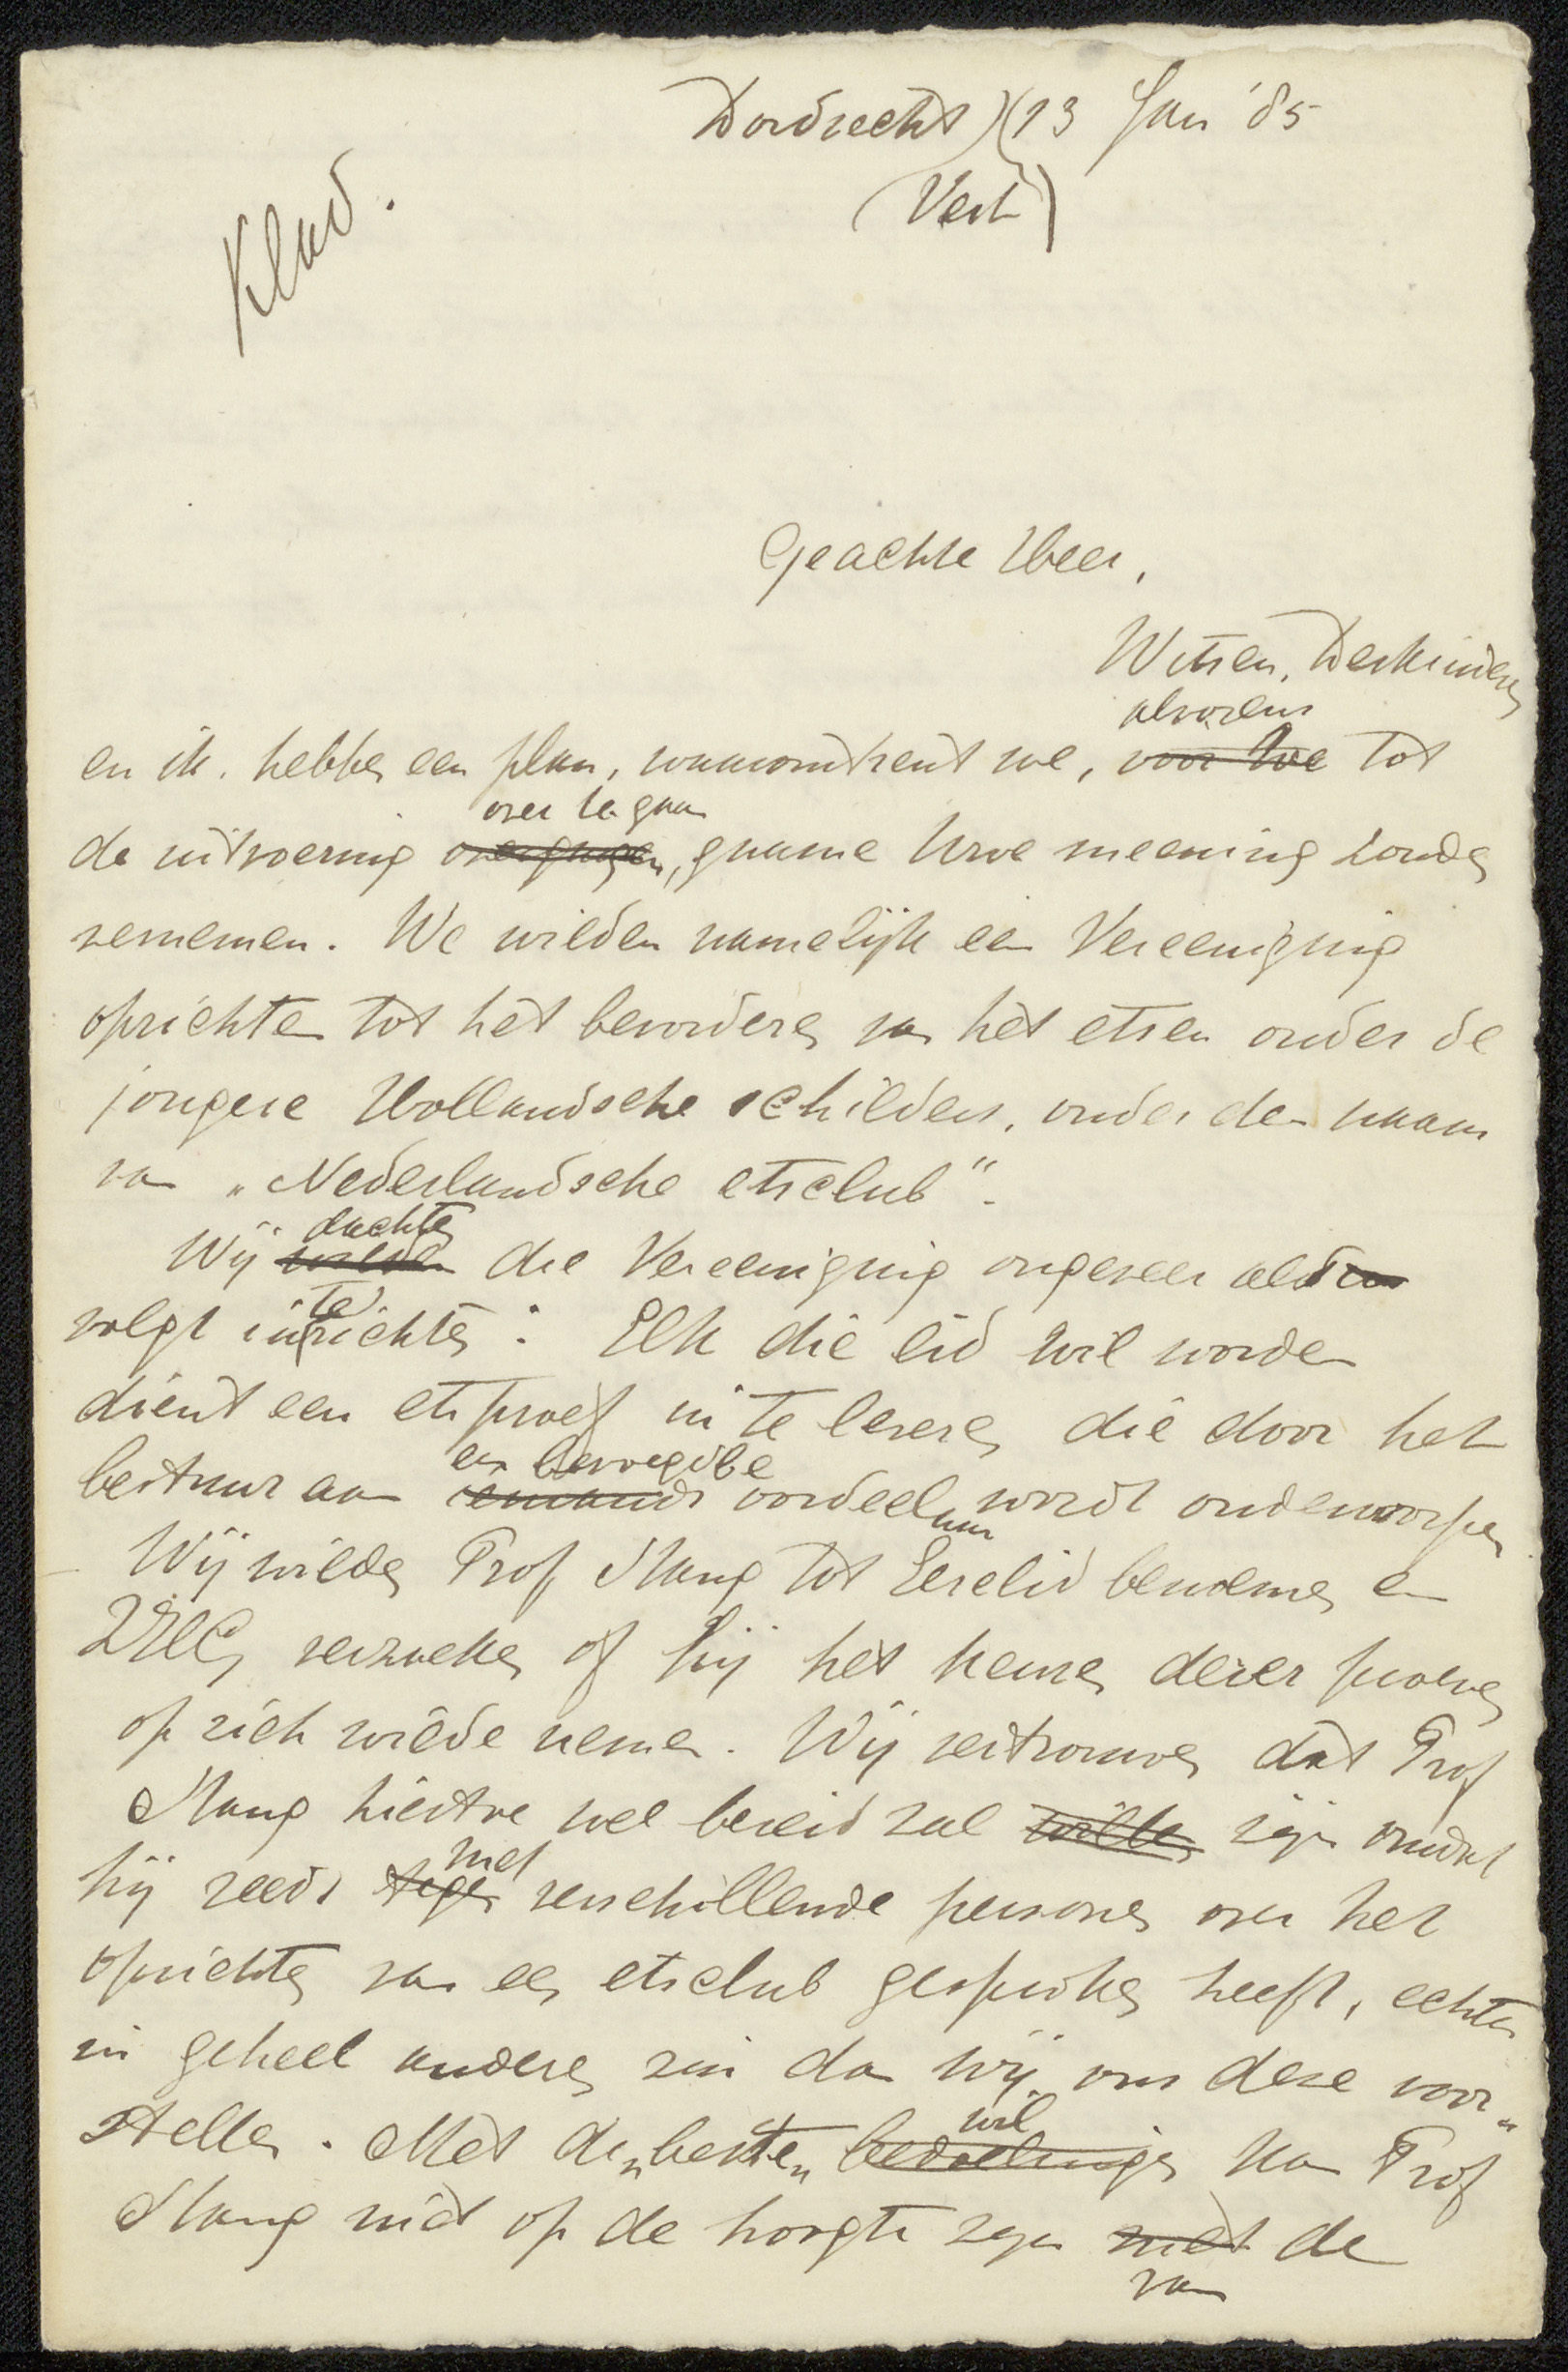 Dordrecht) (13 Jan '85
Klad.
(Vest)
Geachte Heer,
Witsen, Derkinderen
alvorens
en ik. hebben een plan, waaromtrent we, voor we tot
over te gaan
de uitvoering overgingen, gaarne Uwe meening zouden
vernemen. We wilden namelijk een Vereeniging
oprichten tot het bevorderen van het etsen onder de
jongere Hollandsche schilders, onder den naam
van „Nederlandsche etsclub".
dachten
Wij wilden die Vereeniging ongeveer als
te
volgt inrichten : Elk die lid wil worden
dient een etsproef in te leveren die door het
een bevoegd
bestuur aan iemands oordeel wordt onderworpen
aan
Wij wilden Prof Stang tot Eerelid benoemen en
ZHG verzoeken of hij het keuren dezer proeven
op zich wilde nemen. Wij vertrouwen dat Prof
Stang hiertoe wel bereid zal willen zijn omdat
met
hij reeds tegen verschillende personen over het
oprichten van een etsclub gesproken heeft, echter
in geheel anderen zin dan wij ons deze voor„
wil
stellen. Met den besten bedoelingen kan Prof
Stang niet op de hoogte zijn met de
van